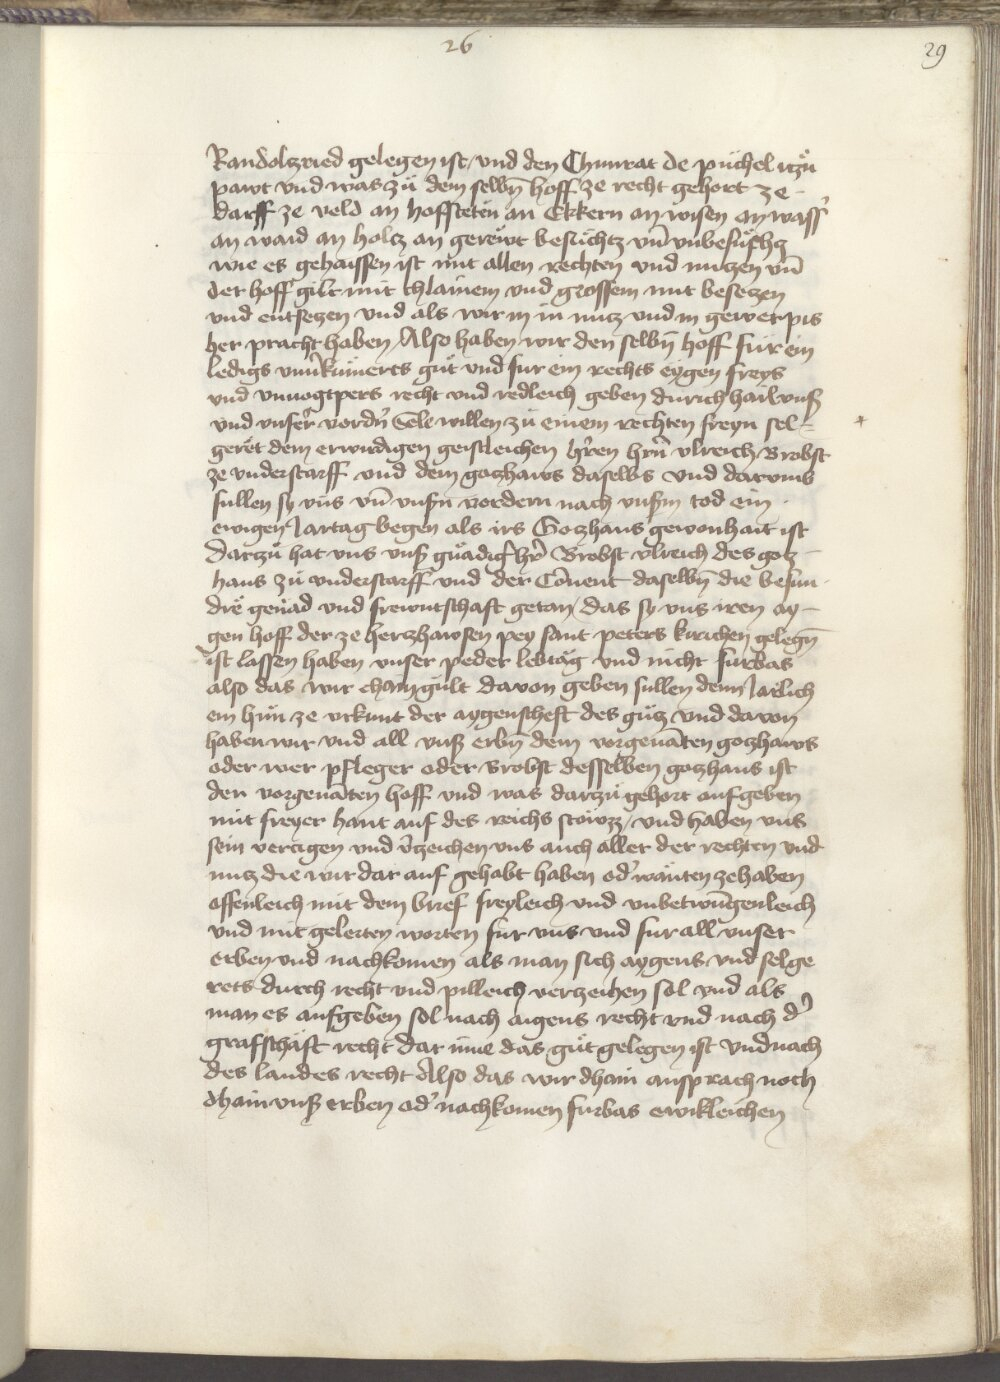 26
29
Randoltzried gelegen ist / und den Chunrat de püchel itzü
pawt vnd was zü dem selbn̄ hoff ze recht gehort ze
darff ze veld an hoffsteten an Ekkern an wisen an wass̄
an waid an holtz an gerewt besuchtz vn̄ vnbesuchtz
wie es gehaissen ist mit allen rechten vnd nutzen vn̄
der hoff gilt mit chlainem vnd grossem mit besetzen
vnd entsetzen vnd als wir in in nutz vnd in gewer pis
her pracht haben Also haben wir den selbn̄ hoff für ein
ledigs vnu̾kümerts güt vnd für ein rechts eygen freys
vnd vnuogtpers recht vnd redleich geben durich hail vnß
vnd vnser̾ vordn̄ Sele willen zü einem rechten freyn sel-
geret dem erwirdigen geistleichen hr̄en hrn̄ vlreich Brobst
ze vnderstorff vnd dem gotzhaws daselbs vnd darvmb
sullen sy vns vn̄ vnßn̄ vordern nach vnßm tod ein
ewigen Jartag begen als irs Gotzhaus gewonhait ist
Darzü hat vns vnß gnädig̾ hr̄ Brobst vlreich des gotz-
haus zü vnderstorff vnd der Co̅uent daselbn̄ die besun-
dre genad vnd frewntschaft getan / das sy vns iren ay-
gen hoff der ze hertzhawsen pey sant peters kirichen gelegn̄
ist lassen haben vnser peder lebtäg vnd nicht fürbas
also das wir chain gült davon geben sullen denn Järlich
ein hün ze vrkunt der aygenscheft des gütz vnd davon
haben wir vnd all vnß erbn̄ dem vorgenāten gotzhaws
oder wer pfleger oder Brobst desselben gotzhaus ist
den vorgenāten hoff vnd was darzü gehort aufgeben
mit freyer hant auf des reichs strazz / vnd haben vns
sein verzigen vnd v̾zeichen vns auch aller der rechten vnd
nutz die wir dar auf gehabt haben od̾ wanten ze haben
offenleich mit dem brief freyleich vnd vnbetwūgenleich
vnd mit gelerten worten für vns vnd für all vnser
erben vnd nachkomen als man sich aygens vnd selge
rets durch recht vnd pilleich verzeichen sol vnd als
man es aufgeben sol nach aigens recht vnd nach d̾
grafschäft recht dar inne das güt gelegen ist vnd nach
des landes recht Also das wir dhain ansprach noch
dhain vnß erben od̾ nachkomen fürbas ewikleichen